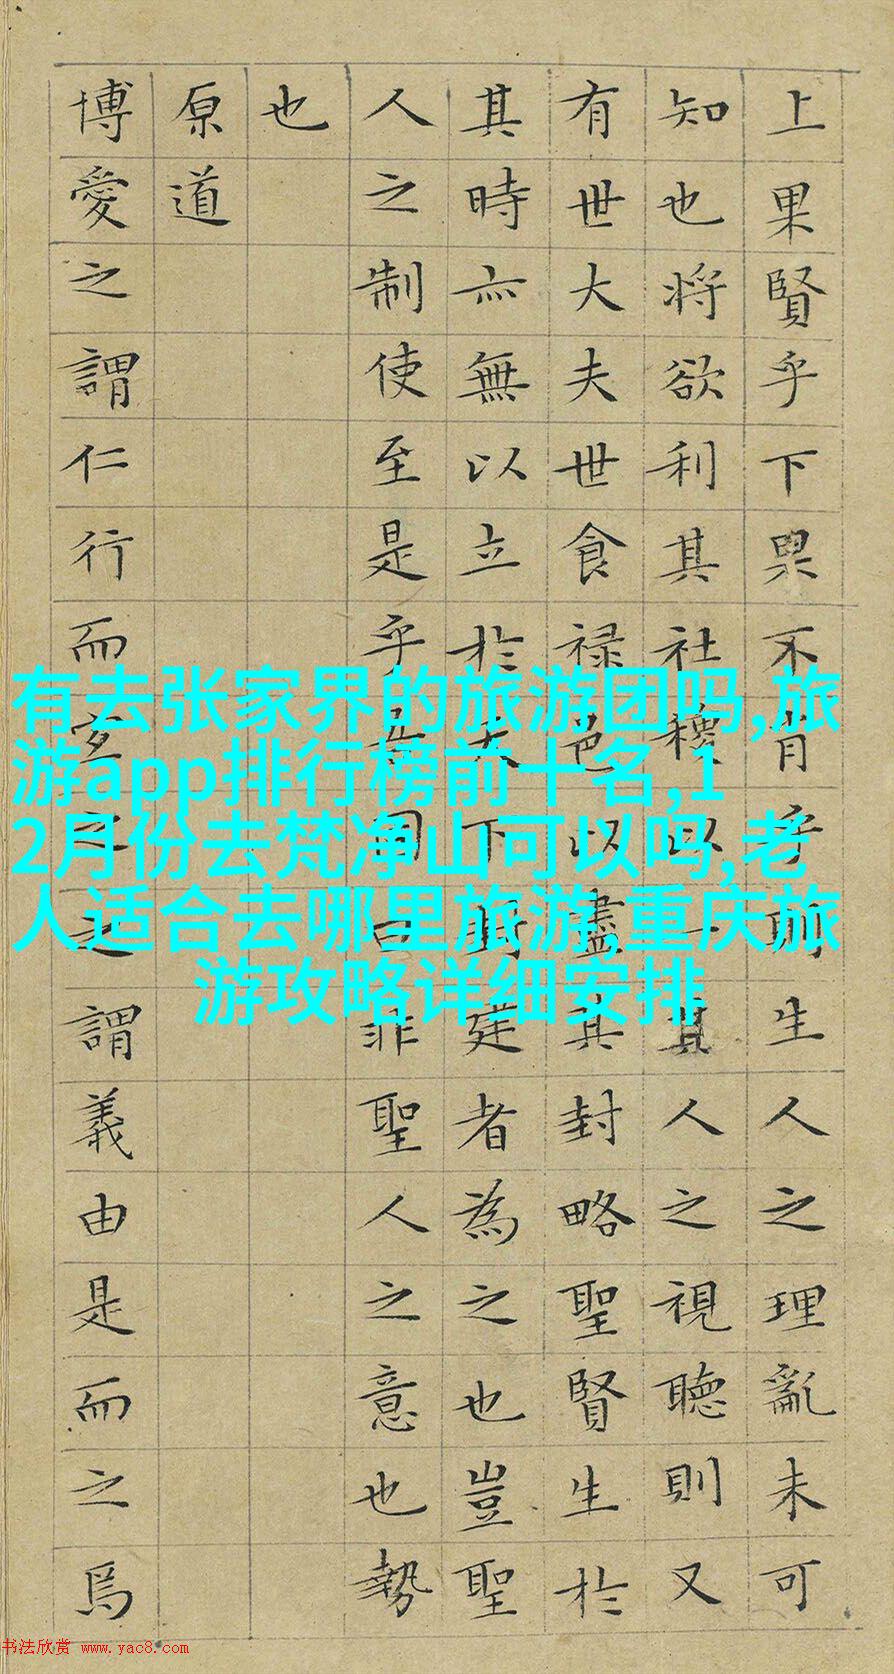 上果賢乎下果不肖乎所生人之理亂未可
知也將欲利其社稷以一其人之視聽則又
有世大夫世食禄邑以盡其封略聖賢生於
其時亦無以立於天下封建者為之也豈聖
人之制使至是乎吾固曰非聖人之意也勢
也
原道
博愛之謂仁行而宜之之謂義由是而之焉
有去张家界的旅游团吗,旅
游app排行榜前十名,1
2月份去梵净山可以吗,老
人适合去哪里旅游,重庆旅
游攻略详细安排
书法欣赏 www.yac8.com